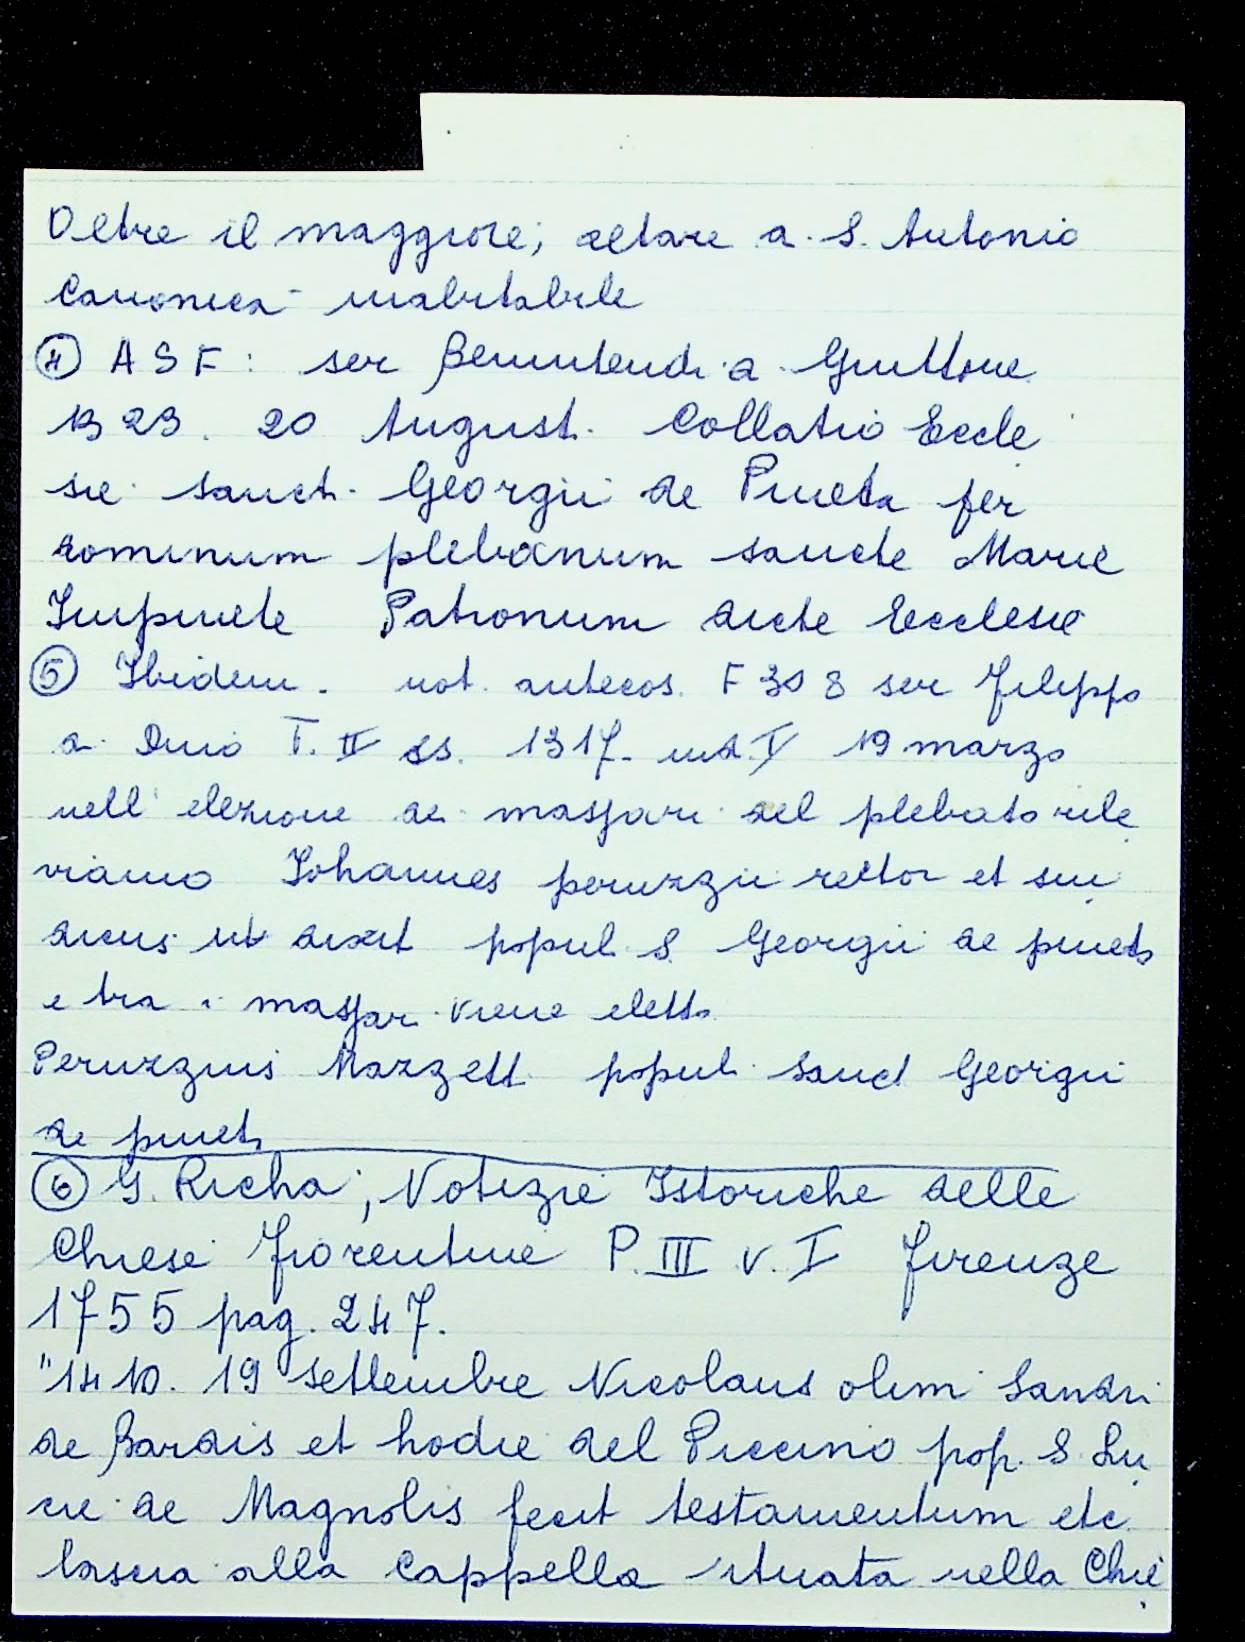 Oltre il maggiore, altare a S. Antonio
Canonica inabitabile
④ ASF: ser Benintendi a Guittone
1323. 20 August. Collatio Eccle
sie sanct. Georgii de Pineta per
dominum plebanum sancte Marie
Impinete Patronum dicte Ecclesie
⑤ Ibidem. not. antecos. F 308 ser Filippo
a Dino T. II ss. 1317. ind. V 19 marzo
nell'elezione dei massari del plebato rile
viamo Johannes peruzzii rector et sin
dicus ut dixit popul. S. Georgii de pineta
e tra i massari viene eletto
Peruzzius Mazzett. popul. Sanct Georgii
de pineta
⑥ G. Richa, Notizie Istoriche delle
Chiese Fiorentine P. III v. I Firenze
1755 pag. 247.
"1410. 19 settembre Nicolaus olim Sandri
de Bardis et hodie del Piccino pop. S. Lu
cie de Magnolis fecit testamentum etc.
lascia alla Cappella situata nella Chie